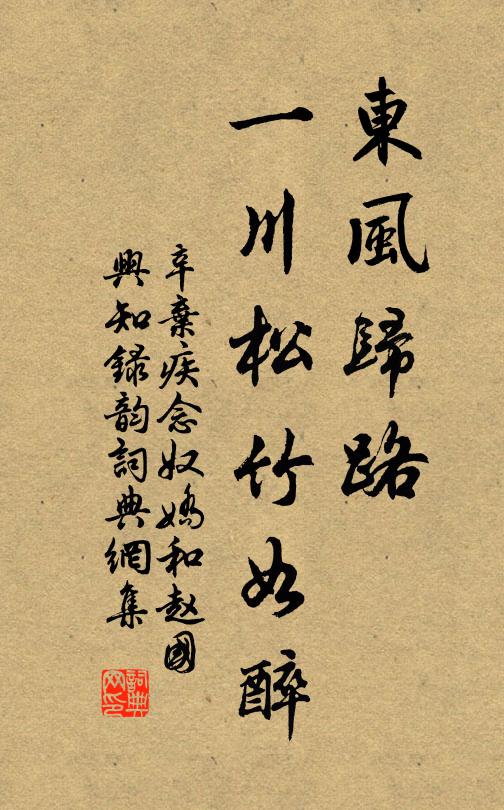 東風歸路
一川松竹如醉
辛棄疾念奴嬌和趙國
興知錄韵詞典網集
詞典网印